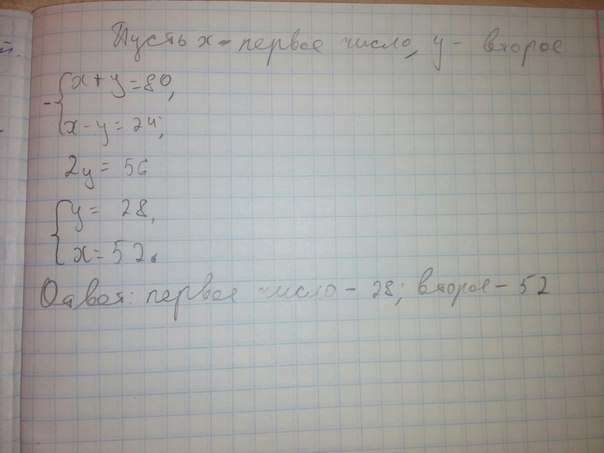 Пусть x - первое число, y - второе
{x+y=80,
x-y=24;
2y = 56
{y= 28,
x= 52.
Ответ: первое число - 28; второе - 52